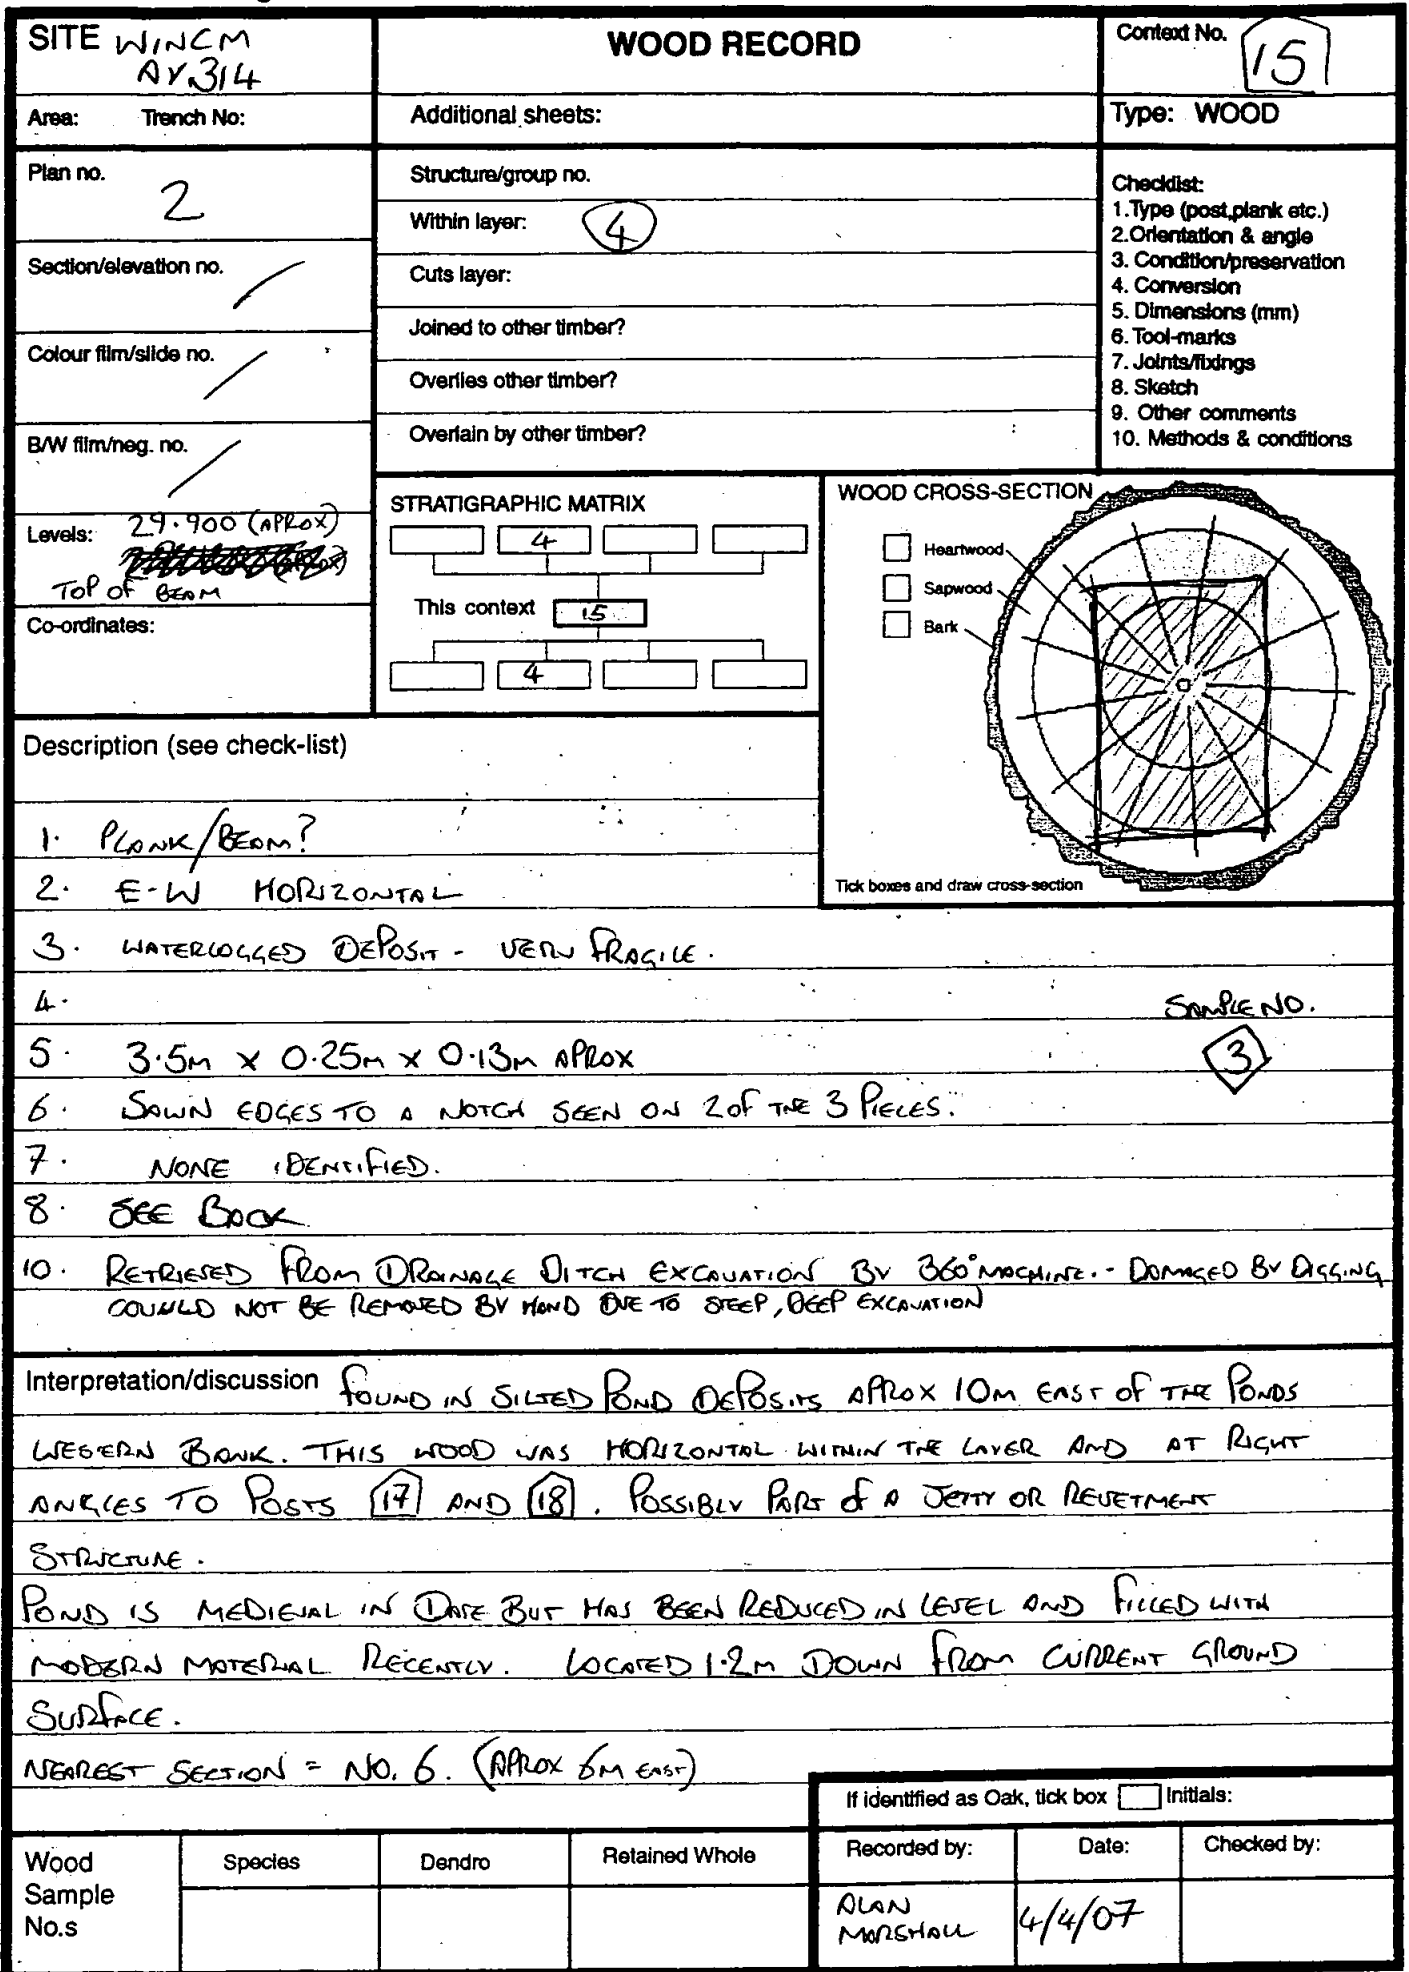 SITE WINCM
AY314
WOOD RECORD
Context No. 15
Area: Trench No:
Additional sheets:
Type: WOOD
Plan no. 2
Structure/group no.
Within layer: 4
Cuts layer:
Joined to other timber?
Overlies other timber?
Overlain by other timber?
Section/elevation no. /
Colour film/slide no. /
B/W film/neg. no. /
Levels: 29.900 (APROX)
TOP OF BEAM
Co-ordinates:
Checklist:
1.Type (post,plank etc.)
2.Orientation & angle
3. Condition/preservation
4. Conversion
5. Dimensions (mm)
6. Tool-marks
7. Joints/fixings
8. Sketch
9. Other comments
10. Methods & conditions
STRATIGRAPHIC MATRIX
4
This context 15
4
WOOD CROSS-SECTION
Heartwood
Sapwood
Bark
Tick boxes and draw cross-section
Description (see check-list)
1. PLANK/BEAM?
2. E-W HORIZONTAL
3. WATERLOGGED DEPOSIT - VERY FRAGILE.
4.
SAMPLE NO.
5. 3.5m x 0.25m x 0.13m APROX
3
6. SAWN EDGES TO A NOTCH SEEN ON 2 OF THE 3 PIECES.
7. NONE IDENTIFIED.
8. SEE BACK
10. RETRIEVED FROM DRAINAGE DITCH EXCAVATION BY 360° MACHINE. - DAMAGED BY DIGGING
COUULD NOT BE REMOVED BY HAND DUE TO STEEP, DEEP EXCAVATION
Interpretation/discussion FOUND IN SILTED POND DEPOSITS APROX 10M EAST OF THE PONDS
WESTERN BANK. THIS WOOD WAS HORIZONTAL WITHIN THE LAYER AND AT RIGHT
ANGLES TO POSTS 17 AND 18. POSSIBLY PART OF A JETTY OR REVETMENT
STRUCTURE.
POND IS MEDIEVAL IN DATE BUT HAS BEEN REDUCED IN LEVEL AND FILLED WITH
MODERN MATERIAL RECENTLY. LOCATED 1.2M DOWN FROM CURRENT GROUND
SURFACE.
NEAREST SECTION = NO. 6. (APROX 6M EAST)
If identified as Oak, tick box Initials:
Wood
Sample
No.s
Species
Dendro
Retained Whole
Recorded by:
Date:
Checked by:
ALAN
MARSHALL
4/4/07